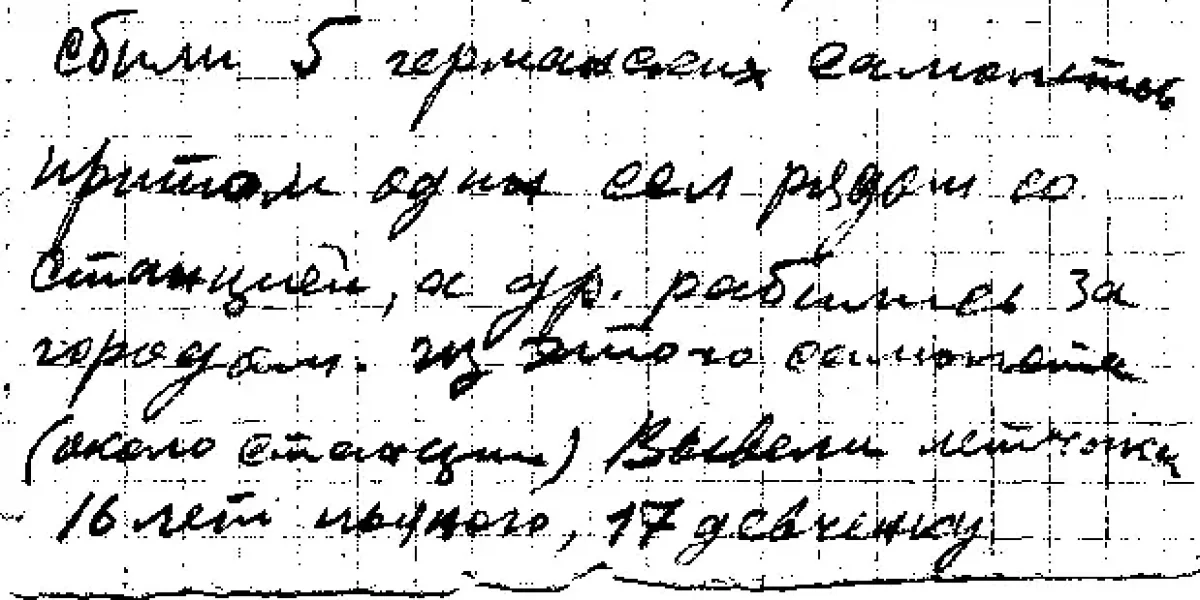 сбили 5 германских самолетов
притом один сел рядом со
станцией, а др. разбились за
городом. из этого самолета
(около станции) вывели летчика
16 лет пьяного, 17 девченку